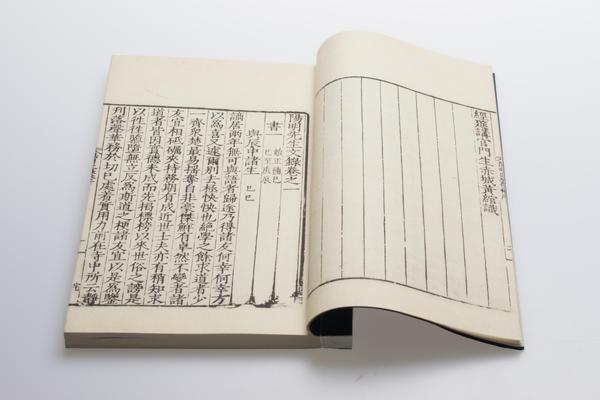 經筵講官門生赤城黃綰識
陽明先生文錄卷之一
書一
始正德己
巳至庚辰
與辰中諸生 己巳
謫居兩年無可與語者歸途乃得諸友何幸何幸方
以爲喜又遽爾別去極怏怏也絕學之餘求道者少
一齊衆楚最易搖奪自非豪傑鮮有卓然不變者諸
友宜相砥礪夾持務期有成近世士夫亦有稍知求
道者皆因實德未成而先揭標榜以來世俗之謗是
以往往隳墮無立反爲斯道之梗諸友宜以是爲鑒
刊落聲華務於切己處著實用力前在寺中所云靜